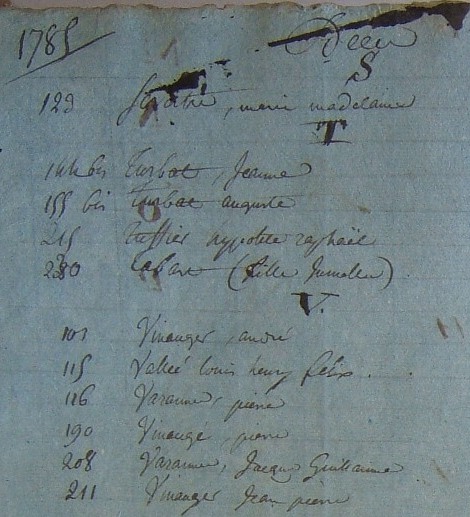 1785
S
123 marie madelaine
T
144 bis Turbat, Jeanne
155 bis Turbat auguste
215 Tuffier hypolite raphaël
280 Tabart (fille Jumelle)
V.
101 Vinanger, andré
115 Vallée louis henry felix.
116 Varanne, pierre
190 Vinangé, pierre
208 Varanne, Jacque Guillaume
211 Vinanger Jean pierre